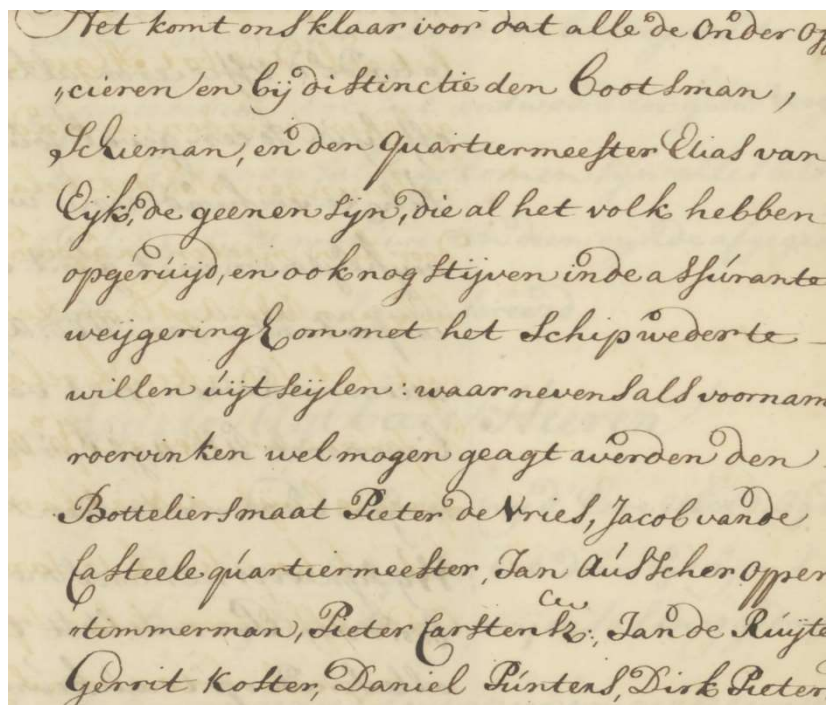 Het komt ons klaar voor dat alle de onder op
„cieren en bij distinctie den Bootsman,
Schieman, en den quartiermeester Elias van
Eijk, de geenen sijn, die al het volk hebben
opgerúijd, en ook nog stijven inde assúrante
weijgering om met het schip weder te
willen úijt seijlen: waarnevens als voornam
roervinken wel mogen geagt werden den
Botteliersmaat Pieter de Vries, Jacob vande
Casteele qúartiermeester, Jan Aússcher opper
timmerman, Pieter Carstensz:, Jan de Rúijte
Gerrit Koster, Daniel Púntens, Dirk Pieter